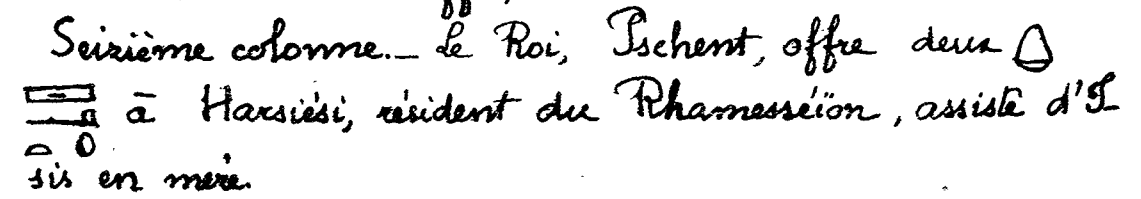 Seizième colonne. _ Le Roi, Pschent, offre deux
à Harsiési, résident du Rhamesséïon, assisté d'I
sis en mère.